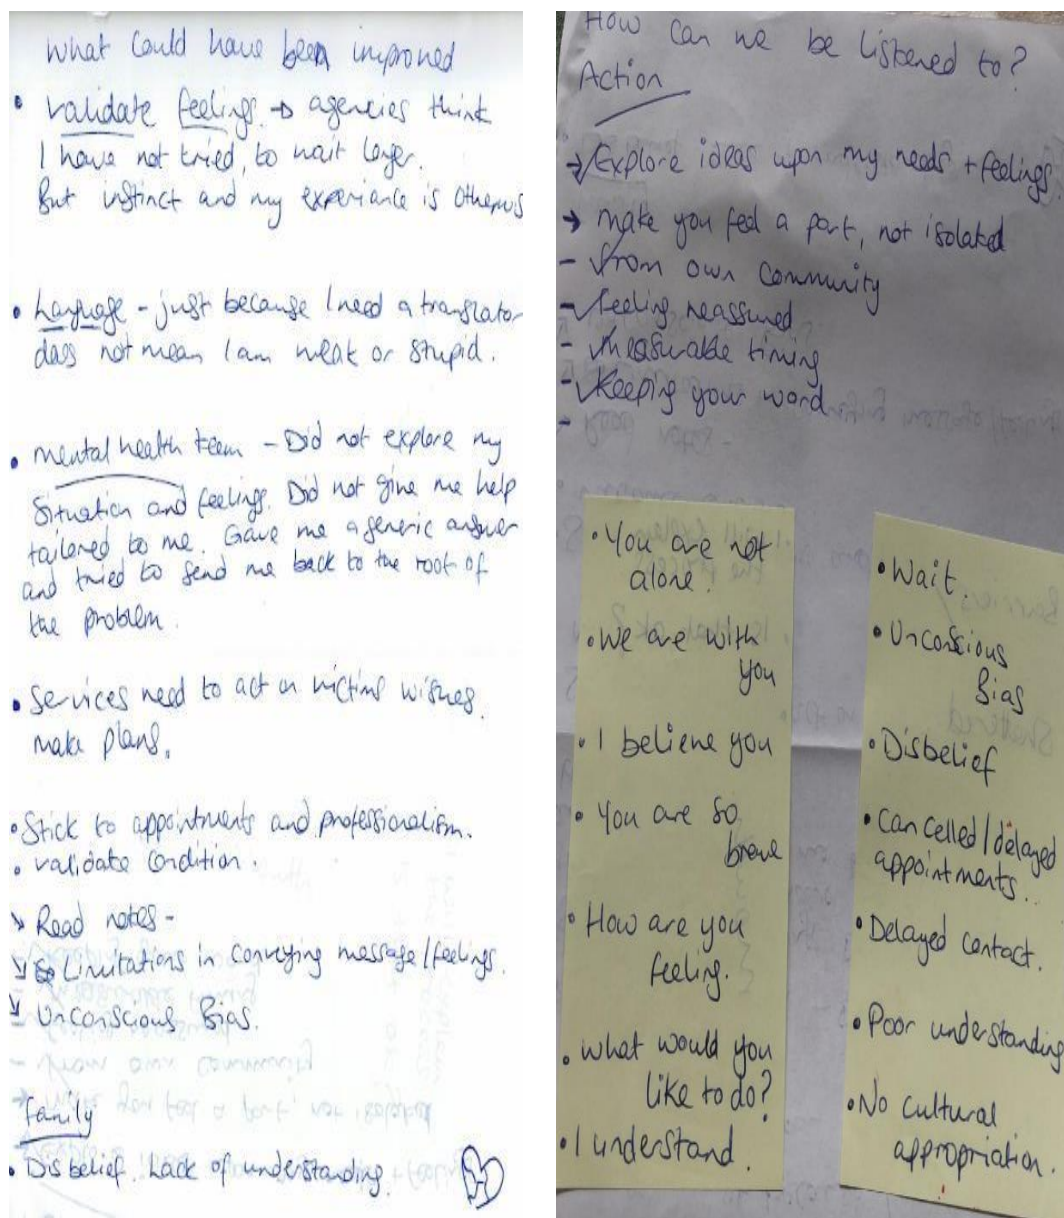 What could have been improved
• validate feelings → agencies think
I have not tried, to wait longer.
But instinct and my experiance is otherwis
• Language - just because I need a translator
does not mean I am weak or stupid.
• mental health team - Did not explore my
situation and feelings. Did not give me help
tailored to me. Gave me a generic answer
and tried to send me back to the root of
the problem.
• Services need to act on victims wishes.
make plans.
• Stick to appointments and professionalism.
• validate condition.
↘ Read notes -
↘ Limitations in conveying message/feelings.
↘ Unconscious Bias.
Family
• Disbelief. Lack of understanding.
How can we be listened to?
Action
→ Explore ideas upon my needs + feelings
→ make you feel a part, not isolated
- from own community
- feeling reassured
- Measurable timing
- Keeping your word
-
• You are not
alone.
• We are with
you
• I believe you
• You are so
brave
• How are you
feeling.
• What would you
like to do?
• I understand.
• Wait.
• Unconsious
Bias
• Disbelief
• Cancelled/delayed
appointments..
• Delayed contact.
• Poor understanding
• No cultural
appropriation.